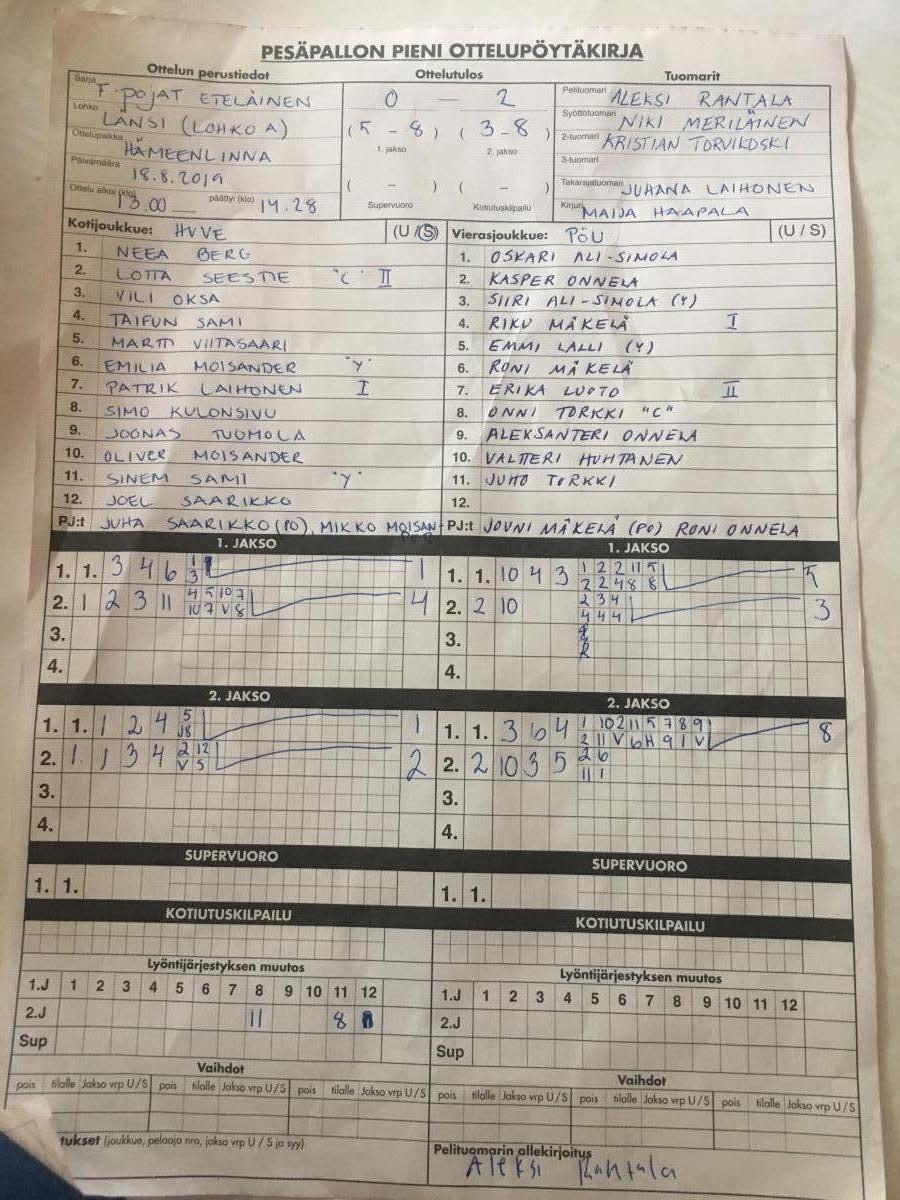 PESÄPALLON PIENI OTTELUPÖYTÄKIRJA
Ottelun perustiedot Ottelutulos Tuomarit
Sarja F-POJAT ETELÄINEN
Lohko LÄNSI (LOHKO A)
Ottelupaikka HÄMEENLINNA
Päivämäärä 18.8.2019
Ottelu alkoi (klo) 13.00 päättyi (klo) 14.28
0 — 2
(5 - 8) (3 - 8)
1. jakso 2. jakso
( - ) ( - )
Supervuoro Kotiutuskilpailu
Pelituomari ALEKSI RANTALA
Syöttötuomari NIKI MERILÄINEN
2-tuomari KRISTIAN TORVIKOSKI
3-tuomari
Takarajatuomari JUHANA LAIHONEN
Kirjuri MAIJA HAAPALA
Kotijoukkue: HVVE (U / S)
1. NEEA BERG
2. LOTTA SEESTIE "C" II
3. VILI OKSA
4. TAIFUN SAMI
5. MARTTI VIITASAARI
6. EMILIA MOISANDER "Y"
7. PATRIK LAIHONEN I
8. SIMO KULONSIVU
9. JOONAS TUOMOLA
10. OLIVER MOISANDER
11. SINEM SAMI "Y"
12. JOEL SAARIKKO
PJ:t JUHA SAARIKKO (PO), MIKKO MOISANDER
Vierasjoukkue: PÖU (U / S)
1. OSKARI ALI-SIMOLA
2. KASPER ONNELA
3. SIIRI ALI-SIMOLA (Y)
4. RIKU MÄKELÄ I
5. EMMI LALLI (Y)
6. RONI MÄKELÄ
7. ERIKA LUOTO II
8. ONNI TORKKI "C"
9. ALEKSANTERI ONNELA
10. VALTTERI HUHTANEN
11. JUHO TORKKI
12.
PJ:t JOUNI MÄKELÄ (PO) RONI ONNELA
1. JAKSO
1. 1. 3 4 6 1
3
2. 1 2 3 11 4 5 10 7 4
10 7 V 8
3.
4.
1. JAKSO
1. 1. 10 4 3 1 2 2 11 5 5
2 2 4 8 8
2. 2 10 2 3 4 3
4 4 4
3.
4.
2. JAKSO
1. 1. 1 2 4 5 1
J8
2. 1. 1 3 4 2 12 2
V 5
3.
4.
2. JAKSO
1. 1. 3 6 4 1 10 2 11 5 7 8 9 8
2 11 V 6H 9 1 V
2. 2 10 3 5 2 6
11 1
3.
4.
SUPERVUORO
1. 1.
SUPERVUORO
1. 1.
KOTIUTUSKILPAILU
KOTIUTUSKILPAILU
Lyöntijärjestyksen muutos
1.J 1 2 3 4 5 6 7 8 9 10 11 12
2.J 11 8
Sup
Lyöntijärjestyksen muutos
1.J 1 2 3 4 5 6 7 8 9 10 11 12
2.J
Sup
Vaihdot
pois tilalle Jakso vrp U/S pois tilalle Jakso vrp U/S pois tilalle Jakso vrp U/S
Vaihdot
pois tilalle Jakso vrp U/S pois tilalle Jakso vrp U/S pois tilalle Jakso vrp U/S
tukset (joukkue, pelaaja nro, jakso vrp U / S ja syy)
Pelituomarin allekirjoitus
Aleksi Rantala